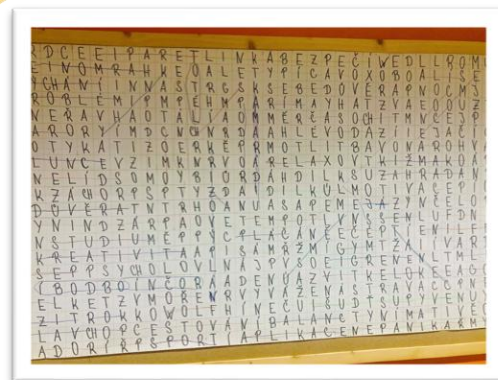 RDCEEIPARETLINKABEZPEČIWEDLLROML
EINOMRAHKEOALETYPICAVOXOBOALISE
YCHÁNÍINNASTRGSKSEBEDOVĚRAPNOCMJ
ROBLÉMIPMPĚHMPÁRIMAYHATZVAEOOUZ
NERAVHAOTALVAOMMERČASOCHITMNSEJP
ARORYIMDCNGNRDAAHLÉVODAZIIEJAČI
OTYKATIZOERKÉPRMOTLITBAVONAROHV
LUNCEVZIMKNRVOARELAXOVTKIŽMAKOA
NELIDSOMOYBIORDAHDLKSUZAHRADAN
KZÁCHORPSPTYZDAÍDIKÚLMOTIVACEPI
DOVĚRATNTRHOANUASAPEMEJAZYNČELO
YNINDZÁRPAOVETEMPOTLVNSSENLUFDN
NSTUDIUMEPPYCPLACANČEČEPTIENILF
KREATIVITAAPISAMRŽMIGYMTŽAIVARI
SEPPSYCHOLOVLNAJPVSOEIGRENENLTML
(BODBOINČORAADENUAZVITKELOKEEAGO
ELKETZVMORENRVYVÁŽENÁSTRAVACCPN
ZITROKKOWOLFHINECUISUDTSUPYVENU
LAYCHOPCESTOVÁNÍBALANCTYNÍMATIVES
ADORIRPSPORTIAPLIKACENEPANIKARMS